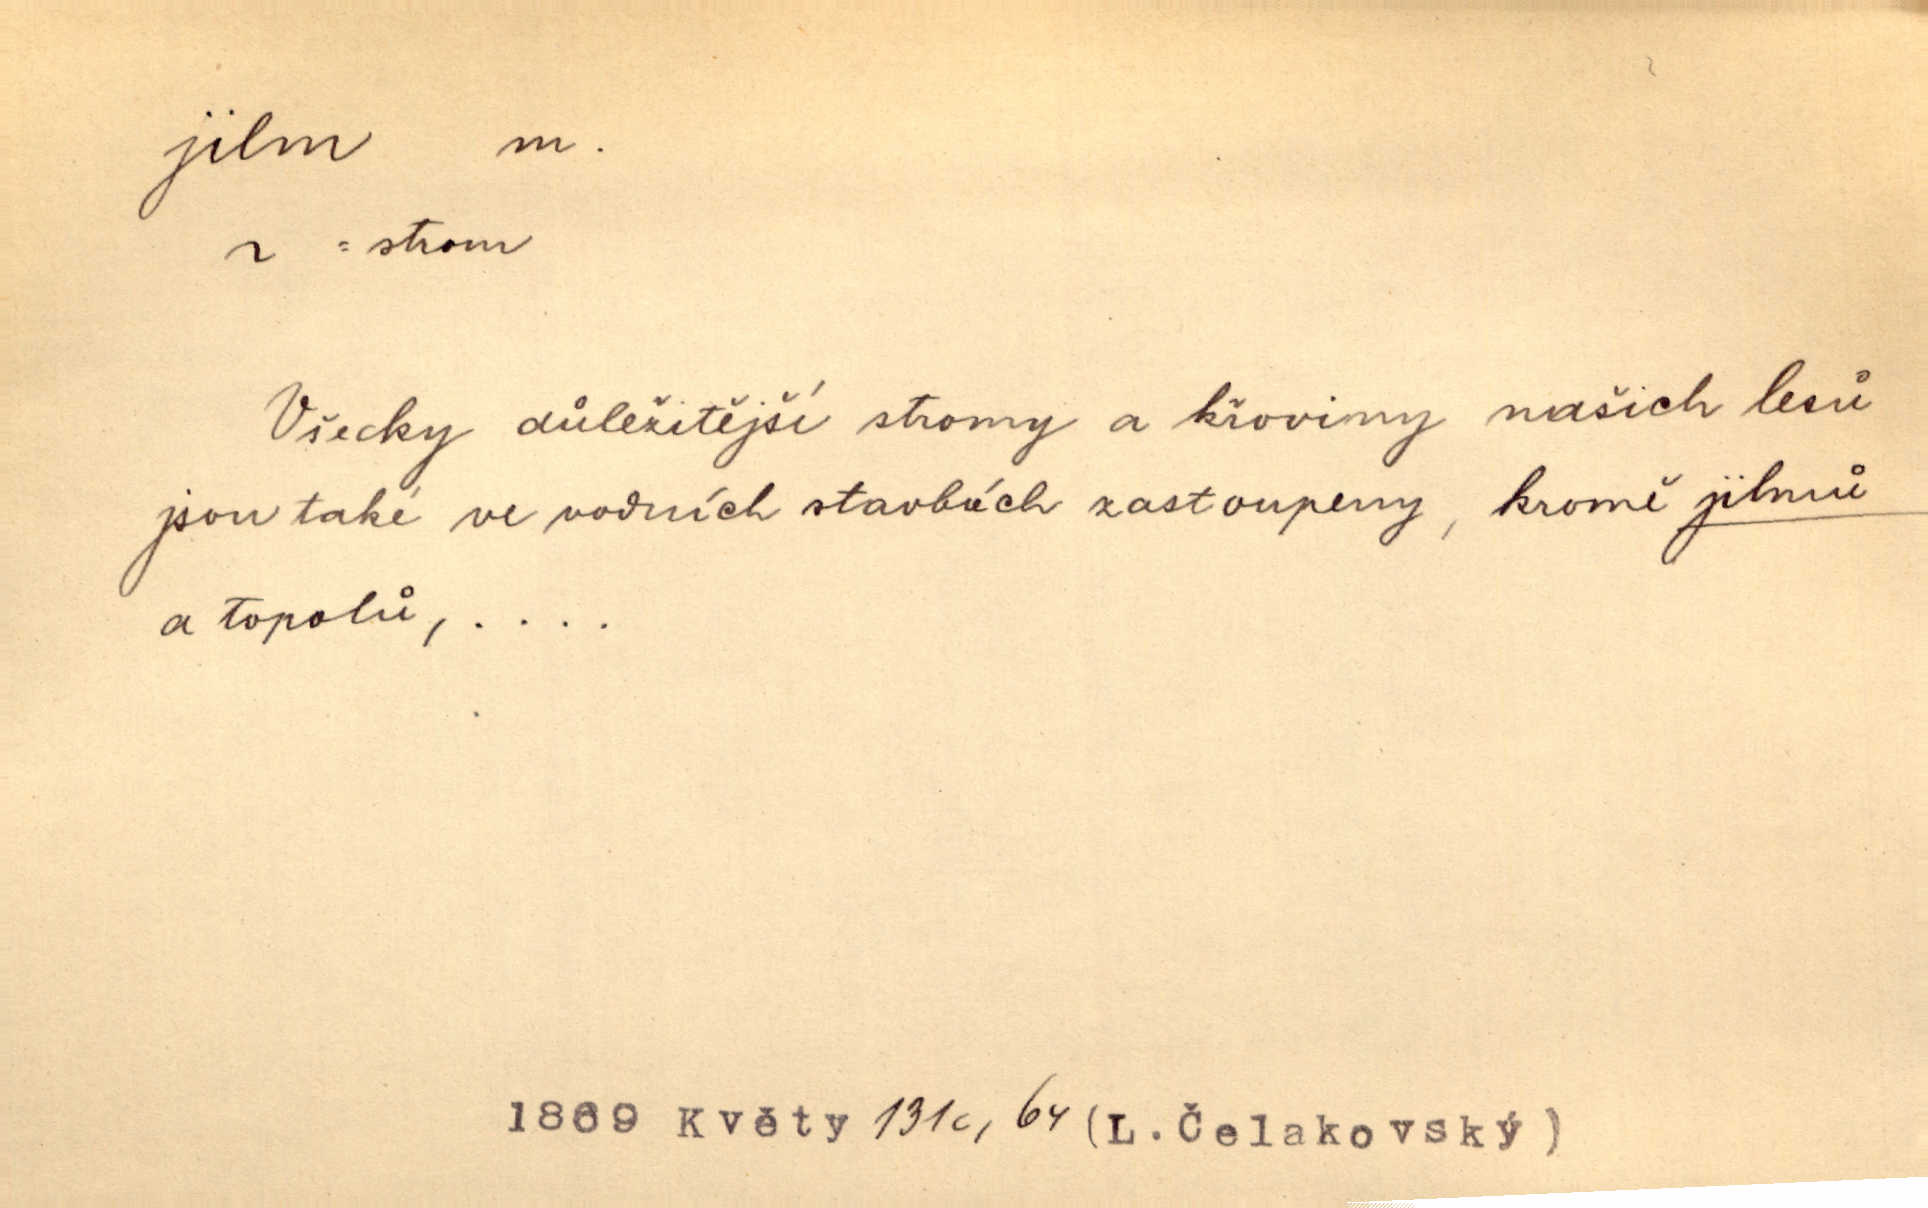 jilm m.
~ = strom
Všecky důležitější stromy a křoviny našich lesů
jsou také ve vodních stavbách zastoupeny, kromě jilmů
a topolů, . . . .
1869 Květy 131c, 64 (L.Čelakovský)